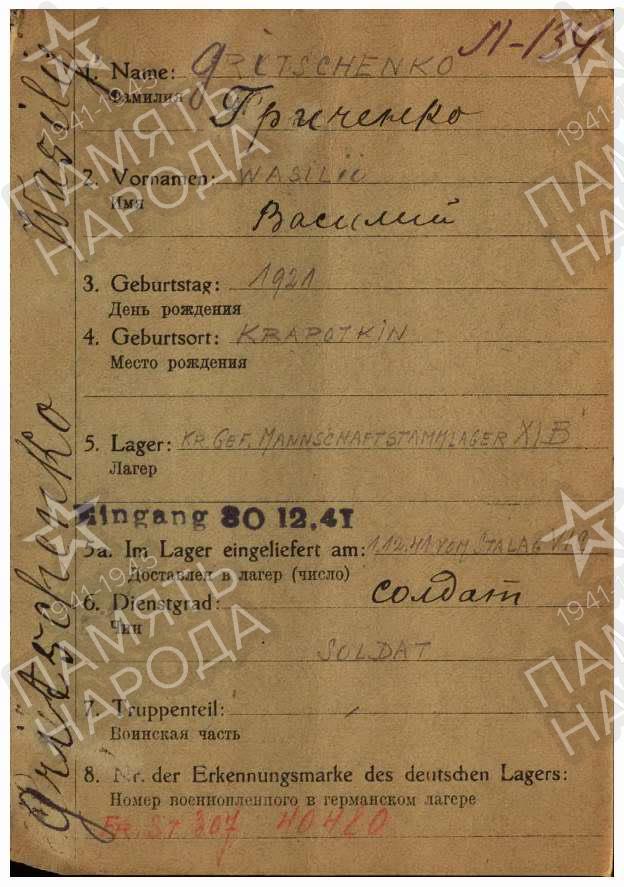 Л-134
1. Name: GRITSCHENKO
Фамилия
Гриченко
2. Vornamen: WASILIJ
Имя
Василий
3. Geburtstag: 1921
День рождения
4. Geburtsort: KRAPOTKIN
Место рождения
5. Lager: KR. GEF. MANNSCHAFTSTAMMLAGER XI B
Лагер
Eingang 30 12.41
5a. Im Lager eingeliefert am: 1.12.41 VOM STALAG
Доставлен в лагер (число)
6. Dienstgrad: солдат
Чин
SOLDAT
7. Truppenteil:
Воинская часть
8. Nr. der Erkennungsmarke des deutschen Lagers:
Номер военнопленного в германском лагере
FR. ST 307 40420
Gritschenko Wasilij
ПАМЯТЬ
НАРОДА
1941-1945